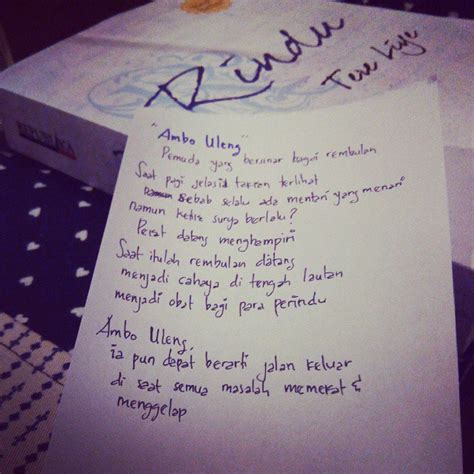 Rindu
Tere Liye
REPUBLIKA
"Ambo Uleng"
Pemuda yang bersinar bagai rembulan
Saat pagi jelaslah takkan terlihat
sebab selalu ada mentari yang menari
namun ketika surya berlalu?
Pekat datang menghampiri
Saat itulah rembulan datang
menjadi cahaya di tengah lautan
menjadi obat bagi para perindu
Ambo Uleng,
ia pun dapat berarti jalan keluar
di saat semua masalah memekat &
menggelap